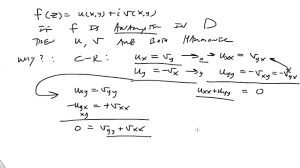 f(z) = u(x,y) + i v(x,y)
IF f IS ANALYTIC IN D
THEN u, v ARE BOTH HARMONIC
WHY? : C-R: u_x = v_y →x u_xx = v_yx
u_y = -v_x →y u_yy = -v_xy = -v_yx
u_xx + u_yy = 0
u_xy = v_yy
-u_yx = +v_xx
xy
0 = v_yy + v_xx